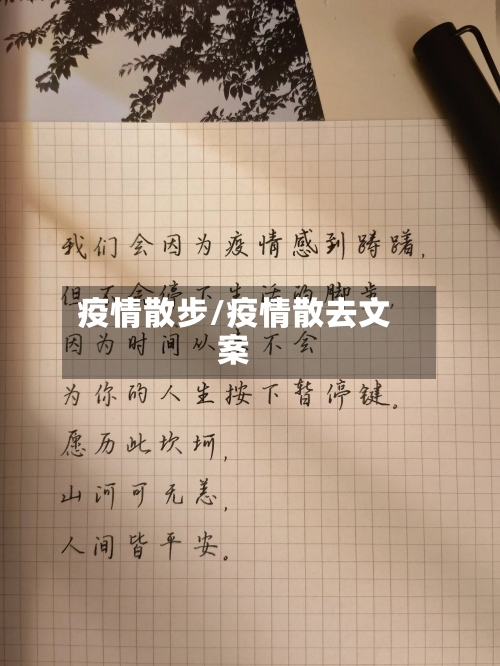 我们会因为疫情感到踌躇,
但不会停下生活的脚步,
疫情散步/疫情散去文
案
因为时间从 不会
为你的人生按下暂停键。
愿历此坎坷,
山河可无恙,
人间皆平安。